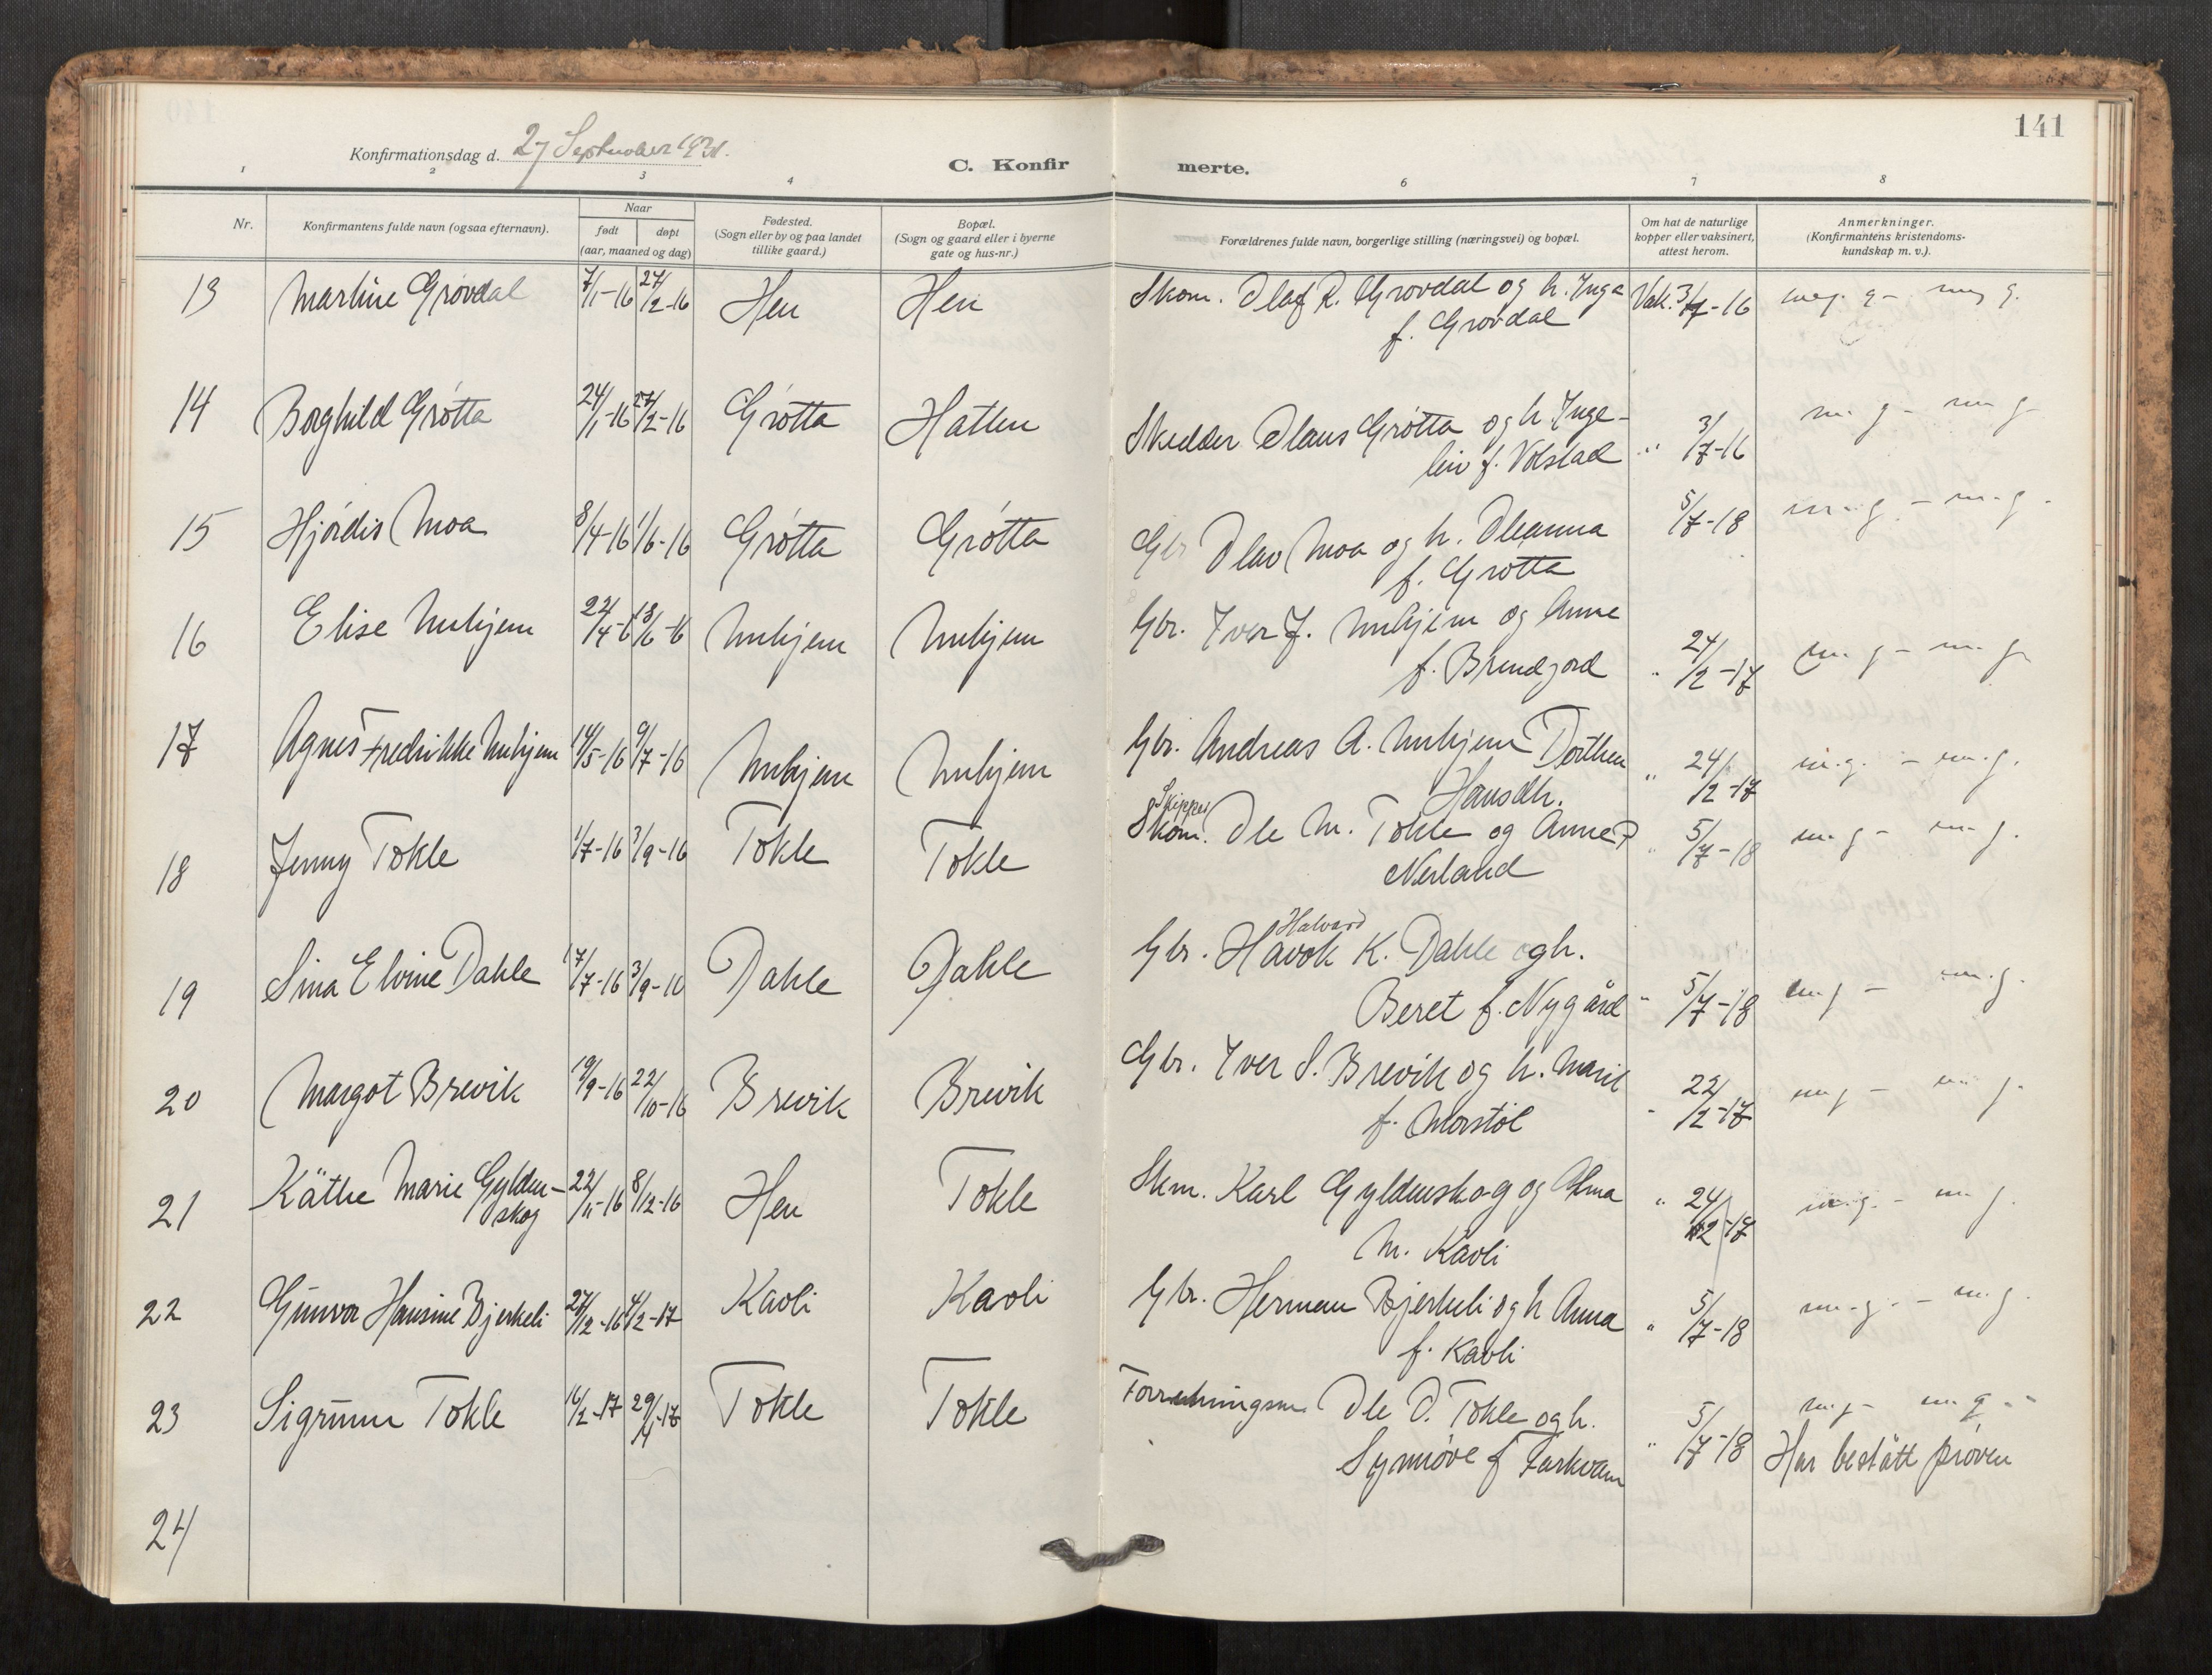 141
Konfirmationsdag d. 27 September 1931.
C. Konfir merte.
1 2 3 4 6 7 8
Nr.
Konfirmantens fulde navn (ogsaa efternavn).
Naar
født døpt
(aar, maaned og dag)
Fødested.
(Sogn eller by og paa landet
tillike gaard.)
Bopæl.
(Sogn og gaard eller i byerne
gate og hus-nr.)
Forældrenes fulde navn, borgerlige stilling (næringsvei) og bopæl.
Om hat de naturlige
kopper eller vaksinert,
attest herom.
Anmerkninger.
(Konfirmantens kristendoms-
kundskap m. v.).
13 Martine Grøvdal 7/1-16 27/2-16 Hen Hen Skom. Olaf R. Grøvdal og h. Inga Vak. 3/7-16 meg. g - meg g.
f. Grøvdal
14 Borghild Grøtta 24/1-16 27/2-16 Grøtta Hatlen Skredder Olaus Grøtta og h. Inge- " 3/7-16 m. g - m g
leiv f. Volstad
15 Hjördis Moa 8/4-16 1/6-16 Grøtta Grøtta Gbr Olav Moa og h. Oleanna 5/7-18 m. g. - m. g.
f. Grøtta
16 Elise Unhjem 22/4-16 18/6-16 Unhjem Unhjem Gbr. Iver J. Unhjem og Anne
f. Brendjord " 24/2-17 m. g - m. g.
17 Agnes Fredrikke Unhjem 14/5-16 9/7-16 Unhjem Unhjem Gbr. Andreas A. Unhjem Dorthea " 24/2-17 m. g. - m. g.
Hansdtr.
Skipper
18 Jenny Tokle 1/7-16 3/9-16 Tokle Tokle Skom. Ole M. Tokle og Anne P " 5/7-18 m. g - m. g.
Nerland
Halvard
19 Sina Elvine Dahle 17/7-16 3/9-16 Dahle Dahle Gbr. Havok K. Dahle og h.
Beret f. Nygård " 5/7-18 m. g - m. g.
20 Margot Brevik 19/9-16 22/10-16 Brevik Brevik Gbr. Iver S. Brevik og h. Marit " 22/2-17 m g - m g.
f. Morstøl
21 Käthe Marie Gylden- 22/11-16 8/12-16 Hen Tokle Skm. Karl Gyldenskog og Alma " 24/2-17 m. g. - m g.
skog
M. Kavli
22 Gunvor Hansine Bjerkeli 27/12-16 4/2-17 Kavli Kavli Gbr. Herman Bjerkeli og h Anna " 5/7-18 m. g. - m. g.
f. Kavli
23 Sigrunn Tokle 16/2-17 29/4-17 Tokle Tokle Forretningsm. Ole O. Tokle og h. " 5/7-18 m. g - m. g.
Synnøve f Farkvam Har bestått prøven
24